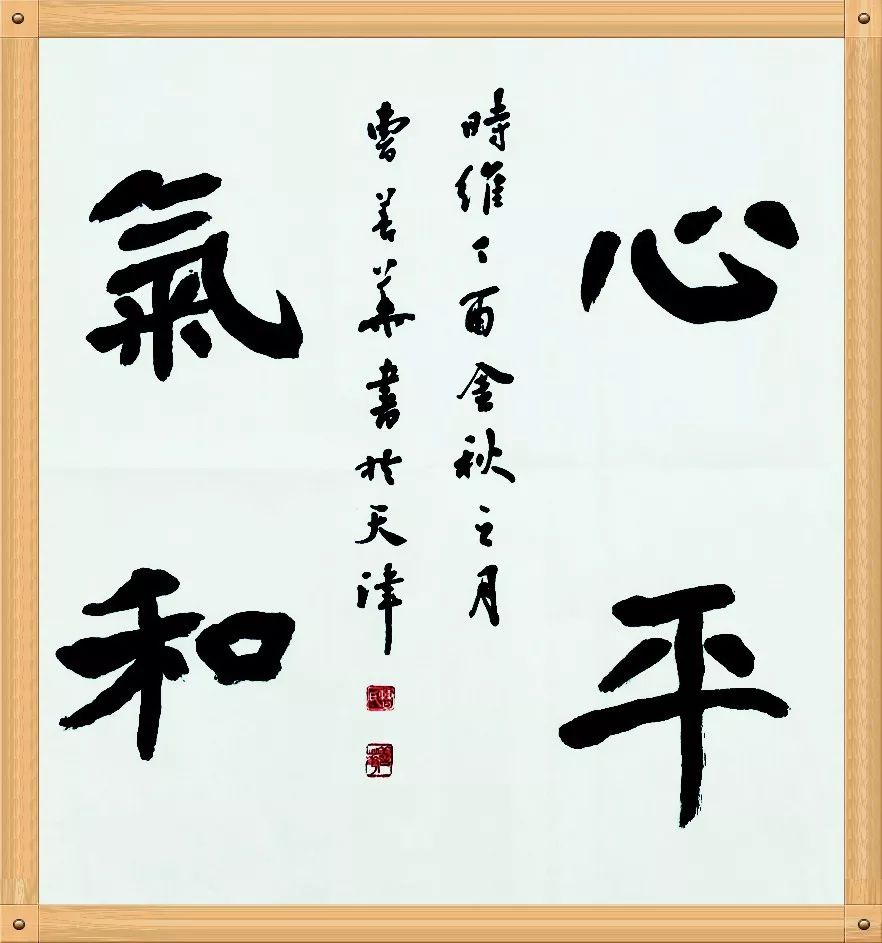 心平
氣和
時維丁酉金秋之月
曹善華書於天津